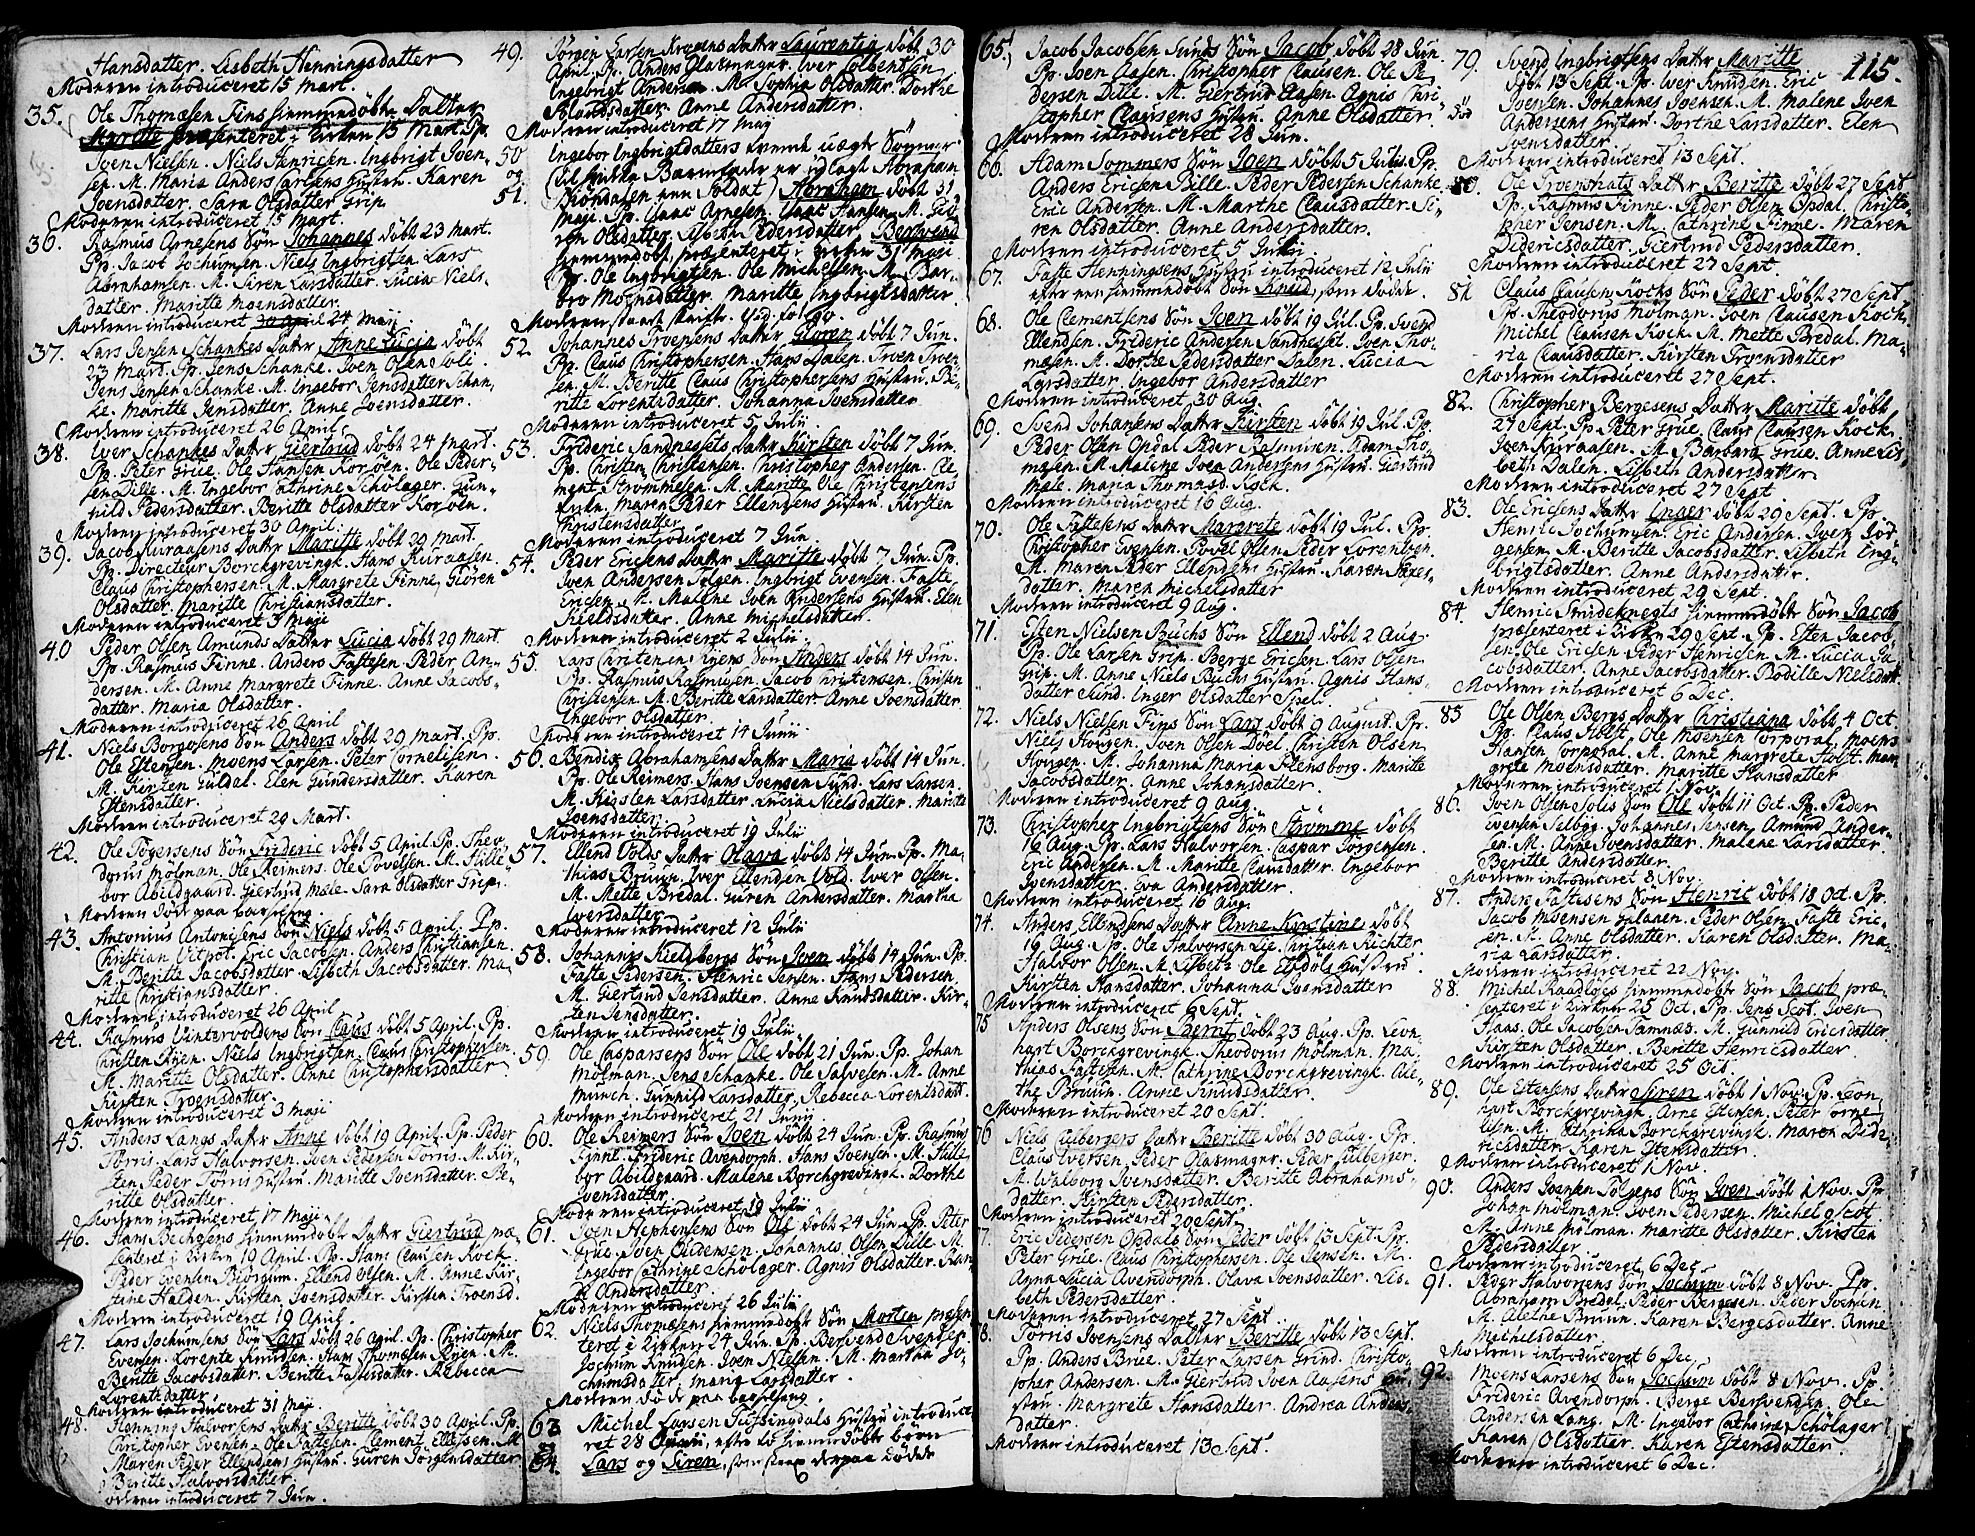 Hansdatter. Lisbeth Henningsdatter
Moderen introduceret 15 Mart.
35. Ole Thomæsen Fins hiemmedøbte Datter
Maritte præsenteret i Kirken 15 Mart. Pp.
Joen Nielsen. Niels Henricsen. Ingbrigt Joen-
sen. M. Maria Anders Carlsens Hustru. Karen
Joensdatter. Sara Olsdatter Grip
Moderen introduceret 15 Mart.
36. Rasmus Arnesens Søn Johannes døbt 23 Mart.
Pp. Jacob Jochumsen. Niels Ingbrigtsen. Lars
Abrahamsen. M. Siren Larsdatter. Lucia Niels-
datter. Maritte Moensdatter.
Moderen introduceret 30 April 24 Maij
37. Lars Jensen Schankes Datter Anne Lucia døbt
23 Mart. Pp. Jens Schanke. Joen Olsen Soli.
Jens Jensen Schanke. M. Ingebor Jensdatter Schan-
ke. Maritte Jensdatter. Anne Joensdatter.
Moderen introduceret 26 April
38. Iver Schankes Datter Giertrud døbt 24 Mart.
Pp. Peter Grüe. Ole Hansen Korsøen. Ole Peder-
sen Dille. M. Ingebor Cathrine Schølager. Gun-
nild Pedersdatter. Beritte Olsdatter Korsøen.
Moderen introduceret 30 April.
39. Jacob Kuraasens Datter Maritte døbt 29 Mart.
Pp. Directeur Borckgrevingk. Hans Kuraasen
Claus Christophersen. M. Margrete Finne. Gloren
Olsdatter. Maritte Christiansdatter.
Moderen introduceret 3 Maji
40 Peder Olsen Amunds Datter Lucia døbt 29 Mart.
Pp. Rasmus Finne. Anders Fastesen. Peder An-
dersen. M. Anne Margrete Finne. Anne Jacobs-
datter. Maria Olsdatter.
Moderen introduceret 26 April
41. Niels Borgesens Søn Anders døbt 29 Mart. Pp.
Ole Estensen. Moens Larsen. Peter Cornelisen.
M. Kirsten Guldal. Elen Gundersdatter. Karen
Estensdatter.
Moderen introduceret 29 Mart.
42. Ole Togersens Søn Frideric døbt 5 April. Pp. Theo-
dorus Molman. Ole Reimers. Ole Povelsen. M. Hille-
bor Abildgaard. Giertrud Mæle. Sara Olsdatter Grip
Moderen døde paa barseseng
43. Antonius Antonisens Søn Niels døbt 5 April. Pp.
Christian Vitpot. Eric Jacobsen. Anders Christiansen
M. Beritte Jacobsdatter. Lisbeth Jacobsdatter. Ma-
ritte Christiansdatter.
Moderen introduceret 26 April
44. Rasmus Vintervoldens Søn Claus døbt 5 April. Pp.
Christen Ryen. Niels Ingbrigtsen. Claus Christophersen
M. Maritte Olsdatter. Anne Christophersdatter
Kirsten Troensdatter.
Moderen introduceret 3 Maji
45. Anders Langs Datter Anne døbt 19 April. Pp. Peder
Torris. Lars Halvorsen. Joen Pedersen Torris. M. Kir-
sten Peder Torris Hustru. Maritte Joensdatter. Be-
ritte Olsdatter.
Moderen introduceret 17 Maji
46. Hans Bechgens hiemmedøbte Datter Giertrud præ-
senteret i Kirken 19 April. Pp. Hans Clausen Kock
Peder Evensen Biörgum. Ellend Olsen. M. Anne Kir-
stine Halden. Kirsten Joensdatter. Kirsten Troensd.
Moderen introduceret 19 April.
47. Lars Jochumsens Søn Lars døbt 26 April. Pp. Christopher
Evensen. Lorentz Knudsen. Hans Thomæsen Ryen. M.
Beritte Jacobsdatter. Beritte Fastesdatter. Rebecca
Lorentzdatter.
Moderen introduceret 31 Maji
48. Henning Halvorsens Datter Beritte døbt 30 April. Pp.
Christopher Evensen. Ole Fastesen. Clement Ellefsen. M.
Maren Peder Ellendsens Hustru. Guren Jørgensdatter
Beritte Halvorsdatter.
Moderen introduceret 7 Jun.
49. Jørgen Larsen Krogens Datter Laurentia døbt 30
April. Pp. Anders Glasmagar. Iver Colbentsen
Ingebrigt Andersen. M. Sophia Olsdatter. Dorthe
Anne Andersdatter.
Moderen introduceret 17 Maij
50 og 51. Ingebor Ingbrigtdatters uægte Sønner
(til hvilke Barnefader er udlagt Abraham
en Soldat) Abraham døbt 31
Maji. Pp. Isaac Arnesen. Isaac Hansen. M. Gu-
ren Olsdatter. Lisbeth Pedersdatter. Berwend
hiemmedøbt, præsenteret i Kirken 31 Maji
Pp. Ole Ingbrigtsen. Ole Michelsen. M. Bar-
bro Moensdatter. Maritte Ingbrigtsdatter
52. Johannes Troensens Datter Gloren døbt 7 Jun.
Pp. Claus Christophersen. Hans Dalen. Troen Troen-
sen. M. Beritte Claus Christophersens Hustru. Be-
ritte Lorentzdatter. Johanna Joensdatter
Moderen introduceret 5 Julii
53. Frideric Sandnessets Datter Kirsten døbt 7 Jun.
Pp. Christen Christensen. Christopher Andersen. Cle-
ment Strømmesen. M. Maritte Ole Christensens
Enke. Maren Peder Ellendsens Hustru. Kirsten
Christensdatter
Moderen introduceret 7 Jun.
54. Peder Ericsens Datter Maritte døbt 7 Jun. Pp.
Joen Andersen Tolgen. Ingbrigt Evensen. Faste
Ericsen. M. Malene Joen Andersens Hustru. Elen
Kieldsdatter. Anne Michelsdatter.
Moderen introduceret 2 Julii
55. Lars Christensen Ryens Søn Anders døbt 14 Jun.
Pp. Rasmus Rasmusen. Jacob Christensen. Christen
Christensen. M. Beritte Larsdatter. Anne Joensdatter.
Ingebor Olsdatter.
Moderen introduceret 14 Junii
56. Bendix Abrahamsens Datter Maria døbt 14 Jun.
Pp. Ole Reimers. Hans Joensen Sund. Lars Larsen.
M. Kirsten Larsdatter. Lucia Nielsdatter. Maritte
Joensdatter.
Moderen introduceret 19 Julii
57. Ellend Volds Datter Olava døbt 14 Jun. Pp. Ma-
thias Bruun. Iver Ellendsen Vold. Iver Olsen.
M. Mette Bredal. Guren Andersdatter. Martha
Iversdatter.
Moderen introduceret 12 Julii
58. Johannis Kieldbergs Søn Joen døbt 14 Jun. Pp.
Faste Pedersen. Henric Jensen. Hans Pedersen
M. Giertrud Jensdatter. Anne Knudsdatter. Kir-
sten Jensdatter.
Moderen introduceret 19 Julii
59. Ole Casparsens Søn Ole døbt 21 Jun. Pp. Johan
Molman. Jens Schanke. Ole Salvesen. M. Anne
Munch. Gunnild Larsdatter. Rebecca Lorentzdatt.
Moderen introduceret 21 Junii
60. Ole Reimers Søn Joen døbt 24 Jun. Pp. Rasmus
Finne. Frideric Avendorph. Hans Joensen. M. Hille-
bor Abildgaard. Malene Borchgrevingk. Dorthe
Joensdatter.
Moderen introduceret 19 Julii
61. Joen Stephensens Søn Ole døbt 24 Jun. Pp. Peter
Grüe. Joen Gudensen. Johannes Olsen Dille. M.
Ingebor Cathrine Schølager. Agnis Olsdatter. Kari
Andersdatter
Moderen introduceret 26 Julii
62. Niels Thomæsens hiemmedøbt Søn Morten præsen-
teret i Kirken 24 Jun. Pp. Berwend Svendsen
Jochum Knudsen. Joen Nielsen. M. Martha Jo-
chumsdatter. Marie Larsdatter
Moderen døde paa barseseng
63 Michel Larsen Hustru introduce
ret 28 Junii, efter to hiemmedøbte børn
64. Lars og Siren, som strax derpaa døde
65. Jacob Jacobsen Sunds Søn Jacob døbt 28 Jun.
Pp. Joen Aasen. Christopher Clausen. Ole Pe-
dersen Dille. M. Giertrud Aasen. Agnis Chri-
stopher Clausens Hustru. Anne Olsdatter.
Moderen introduceret 28 Jun.
66. Adam Sommers Søn Joen døbt 5 Julii. Pp.
Anders Ericsen Bille. Peder Pedersen Schanke
Eric Andersen. M. Marthe Clausdatter. Si-
ren Olsdatter. Anne Andersdatter.
Moderen introduceret 5 Julii
67. Faste Henningsens Hustru introduceret 12 Julii
efter en hiemmedøbt Søn Knud, som døde.
68. Ole Clementsens Søn Joen døbt 19 Jul. Pp. Svend
Ellendsen. Frideric Andersen Sandnesset. Joen Tho-
mæsen. M. Dorthe Pedersdatter Dalen. Lucia
Larsdatter. Ingebor Andersdatter
Moderen introduceret 30 Aug.
69. Svend Johansens Datter Kirsten døbt 19 Jul. Pp.
Peder Olsen Opdal. Peder Rasmusen. Adam Tho-
mæsen. M. Malene Joen Andersens Hustru. Giertrud
Mæle. Maria Thomasd. Kock.
Moderen introduceret 16 Aug.
70. Ole Fastesens Datter Margrete døbt 19 Jul. Pp.
Christopher Evensen. Povel Olsen. Peder Lorentzen.
M. Maren Peder Ellendsens Hustru. Karen Fastes-
datter. Maren Michelsdatter
Moderen introduceret 9 Aug.
71. Esten Nielsen Buchs Søn Ellend døbt 2 Aug.
Pp. Ole Larsen Grip. Berge Ericsen. Lars Olsen
Grip. M. Anne Niels Buchs Hustru. Agnis Hans-
datter Sund. Inger Olsdatter Spel.
72. Niels Nielsen Fins Søn Lars døbt 9 August. Pp.
Niels Hougen. Joen Olsen Döel. Christen Olsen
Hougen. M. Johanna Maria Flensborg. Maritte
Jacobsdatter. Anne Johansdatter.
Moderen introduceret 9 Aug.
73. Christopher Ingbrigtsens Søn Strømme døbt
16 Aug. Pp. Lars Halvorsen. Caspar Jørgensen.
Eric Andersen. M. Maritte Clausdatter. Ingebor
Joensdatter. Eva Andersdatter.
Moderen introduceret 16 Aug.
74. Anders Ellendsens Datter Anne Kirstine døbt
19 Aug. Pp. Ole Halvorsen Lie. Christian Richter
Halvor Olsen. M. Lisbeth Ole Hustru.
Kirsten Hansdatter. Johanna Joensdatter
Moderen introduceret 6 Sept.
75 Anders Olsens Søn Bernt døbt 23 Aug. Pp. Leon-
hart Borckgrevingk. Theodorus Molman. Ma-
thias Fastesen. M. Cathrine Borckgrevingk. Ale-
the Bruun. Anne Knudsdatter.
Moderen introduceret 20 Sept.
76 Niels Culbergers Datter Beritte døbt 30 Aug. Pp.
Claus Iversen. Peder Glasmager. Peder Culberger.
M. Walborg Joensdatter. Beritte Abrahams-
datter. Kirsten Pedersdatter
Moderen introduceret 20 Sept.
7. Eric Pedersen Opdals Søn Peder døbt 13 Sept. Pp.
Peter Grüe. Claus Christophersen. Ole Jensen. M.
Anna Lucia Avendorph. Olava Joensdatter. Lis-
beth Pedersdatter.
Moderen introduceret 27 Sept.
8. Torris Joensens Datter Beritte døbt 13 Sept.
Pp. Anders Brüe. Peter Larsen Grind. Christo-
pher Andersen. M. Giertrud Joen Aasens Hu-
stru. Margrete Hansdatter. Andrea Anders-
datter.
Moderen introduceret 13 Sept.
115.
79. Svend Ingbrigtsens Datter Maritte
døbt 13 Sept. Pp. Iver Knudsen. Eric
død Joensen. Johannes Joensen. M. Malene Joen
Andersens Hustru. Dorthe Larsdatter. Elen
Joensdatter.
Moderen introduceret 13 Sept.
80. Ole Troenshats Datter Beritte døbt 27 Sept
Pp. Rasmus Finne. Peder Olsen Opdal. Christo-
pher Jensen. M. Cathrine Finne. Maren
Didericsdatter. Giertrud Pedersdatter.
Moderen introduceret 27 Sept.
81 Claus Clausen Kocks Søn Peder døbt 27 Sept
Pp. Theodorus Molman. Joen Clausen Kock.
Michel Clausen Kock. M. Mette Bredal. Ma-
ria Clausdatter. Kirsten Troensdatter
Moderen introduceret 27 Sept.
82. Christopher Bergesens Datter Maritte døbt
27 Sept. Pp. Peter Grüe. Claus Clausen Kock
Joen Kuraasen. M. Barbara Grüe. Anne Lis-
beth Dalen. Lisbeth Andersdatter
Moderen introduceret 27 Sept
83. Ole Ericsens Datter Inger døbt 29 Sept. Pp.
Henric Jochumsen. Eric Andersen. Joen Jör-
gensen. M. Beritte Jacobsdatter. Lisbeth Eng-
brigtsdatter. Anne Andersdatter.
Moderen introduceret 29 Sept.
84. Henric Smideknegts hiemmedøbte Søn Jacob
præsenteret i Kirken 29 Sept. Pp. Esten Jacob-
sen. Ole Ericsen. Peder Henricsen. M. Lucia Ja-
cobsdatter. Anne Jacobsdatter. Bodille Nielsdatt.
Moderen introduceret 6 Dec.
85 Ole Olsen Bergs Datter Christiana døbt 4 Oct.
Pp. Claus Holst. Ole Moensen Corporal. Moens
Hansen Corporal. M. Anne Margrete Holst. Mar-
grete Moensdatter. Maritte Hansdatter
Moderen introduceret 1 Nov.
86. Joen Olsen Solis Søn Ole døbt 11 Oct. Pp. Peder
Evensen Selbyg. Johannes Jensen. Amund Ander-
sen. M. Anne Joensdatter. Malene Larsdatter.
Beritte Andersdatter.
Moderen introduceret 8 Nov.
87. Anders Fastesens Søn Henric døbt 18 Oct. Pp.
Jacob Moensen Galaaen. Peder Olsen. Faste Eric-
sen. M. Anne Olsdatter. Karen Olsdatter. Ma-
ria Larsdatter.
Moderen introduceret 22 Nov.
88. Michel Raadloes hiemmedøbte Søn Jacob præ-
senteret i Kirken 25 Oct. Pp. Jens Scot. Joen
Haas. Ole Jacobsen Tamnæs. M. Gunnild Ericsdatter
Kirsten Olsdatter. Beritte Henricsdatter.
Moderen introduceret 25 Oct.
89. Ole Estensens Datter Siren døbt 1 Nov. Pp. Leon-
hart Borckgrevingk. Arne Estensen. Peter Corne-
lisen. M. Cathrika Borckgrevingk. Maren Dide-
ricsdatter. Karen Estensdatter.
Moderen introduceret 1 Nov.
90. Anders Joensen Tolgens Søn Joen døbt 1 Nov. Pp.
Johan Molman. Joen Pedersen. Michel Scot
M. Anne Molman. Maritte Olsdatter. Kirsten
Pedersdatter
Moderen introduceret 6 Dec.
91. Peder Halvorsens Søn Jochum døbt 8 Nov. Pp.
Abraham Bredal. Peder Bergesen. Peder Joensen
M. Alethe Bruun. Karen Bergesdatter. Anne
Michelsdatter.
Moderen introduceret 6 Dec.
92. Moens Larsens Søn Jochum døbt 8 Nov. Pp.
Frideric Avendorph. Berge Berwendsen. Ole
Andersen Lang. M. Ingebor Cathrine Schölager
Karen Olsdatter. Karen Estensdatter.
Moderen introduceret 6 Dec.